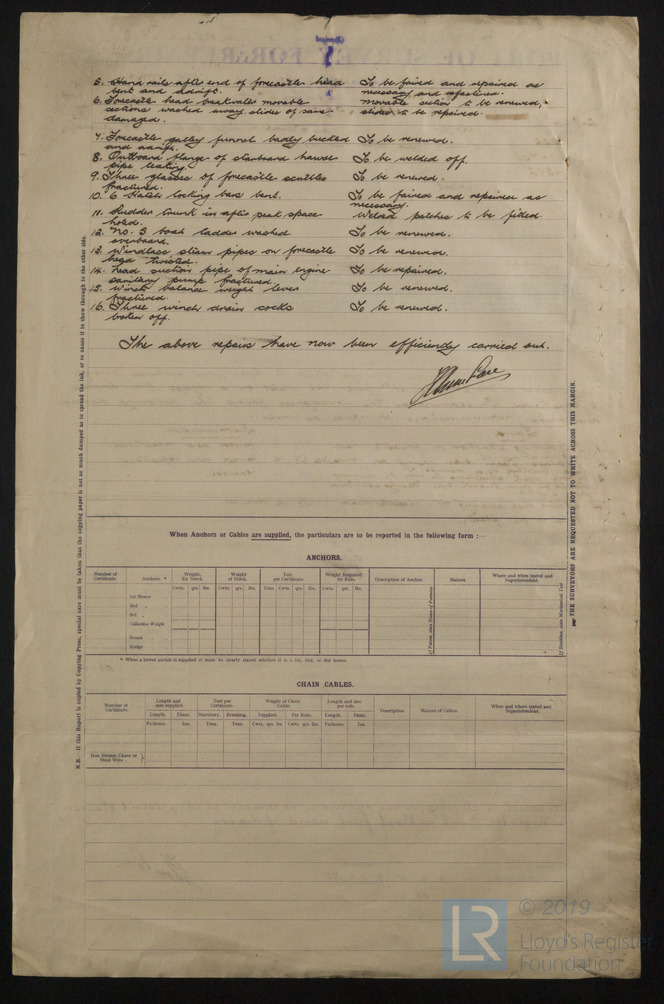 5. Hand rails after end of forecastle head To be faired and repaired as
bent and adrift. necessary and refastened.
6. Forecastle head breakwater movable movable section to be renewed,
sections washed away, slides of same slides to be repaired.
damaged.
7. Forecastle galley funnel badly buckled To be renewed.
and adrift.
8. Outboard flange of starboard hawse To be welded off.
pipe leaking.
9. Three glasses of forecastle scuttles To be renewed.
fractured.
10. 6 Hatch locking bars bent. To be faired and repaired as
necessary.
11. Rudder trunk in after peak space Welded patches to be fitted.
holed.
12. No. 3 boat ladder washed To be renewed.
overboard.
13. Windlass steam pipes on forecastle To be renewed.
head twisted.
14. Head suction pipe of main engine To be repaired.
sanitary pump fractured.
15. Winch balance weight lever To be renewed.
fractured.
16. Three winch drain cocks To be renewed.
broken off.
The above repairs have now been efficiently carried out.
N.B.—If this Report is copied by Copying Press, special care must be taken that the copying paper is not so much damped as to spread the ink, or to cause it to show through to the other side.
THE SURVEYORS ARE REQUESTED NOT TO WRITE ACROSS THIS MARGIN.
When Anchors or Cables are supplied, the particulars are to be reported in the following form :—
ANCHORS.
Number of Certificate. Anchors. * Weight, Ex. Stock. Weight of Stock. Test per Certificate. Weight Required by Rule. Description of Anchor. Makers. Where and when tested and Superintendent.
Cwts. qrs. lbs. Cwts. qrs. lbs. Tons Cwts. qrs. lbs. Cwts. qrs. lbs.
1st Bower
2nd "
3rd "
Collective Weight
Stream
Kedge
* When a bower anchor is supplied it must be clearly stated whether it is a 1st, 2nd, or 3rd bower
CHAIN CABLES.
Number of Certificate. Length and size supplied. Test per Certificate. Weight of Chain Cable. Length and size per rule. Description. Makers of Cables. Where and when tested and Superintendent.
Length. Diam. Statutory. Breaking. Supplied. Per Rule. Length. Diam.
Fathoms. Ins. Tons. Tons. Cwts. qrs. lbs. Cwts. qrs. lbs. Fathoms. Ins.
Iron Stream Chain or
Steel Wire
© 2019
LR
Lloyd's Register
Foundation